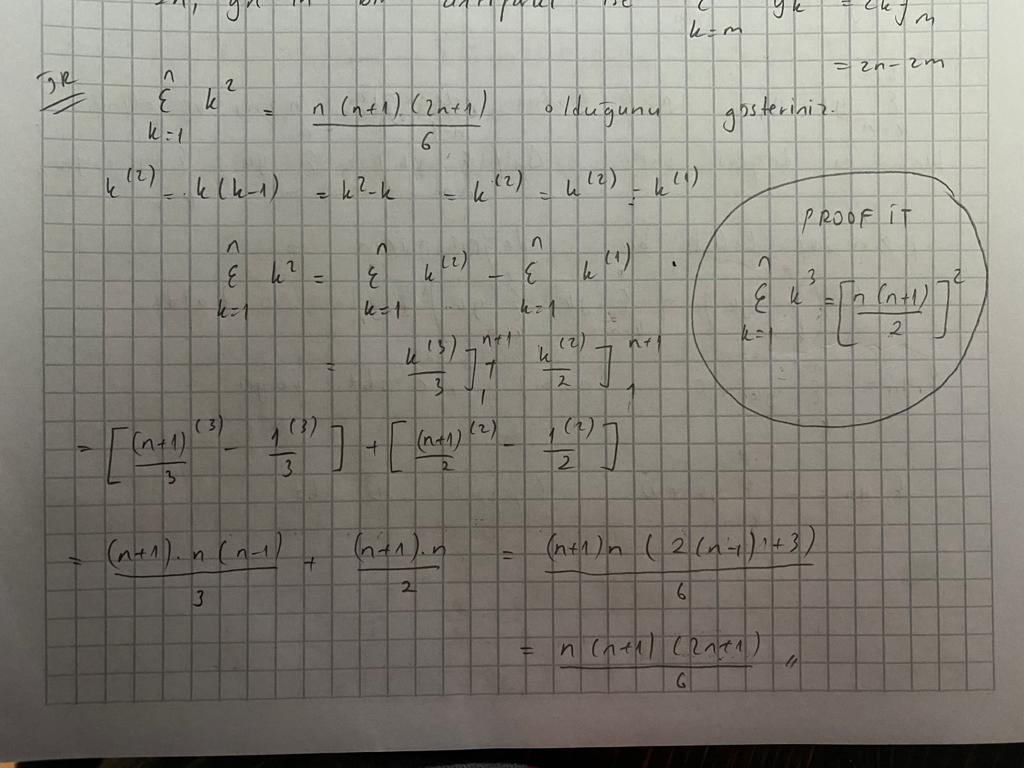 k=m
= 2n - 2m
n
Σ k² = n(n+1).(2n+1) / 6 olduğunu gösteriniz.
k=1
k^(2) = k(k-1) = k²-k = k^(2) = k^(2) = k^(1)
n n n
Σ k² = Σ k^(2) - Σ k^(1) .
k=1 k=1 k=1
= k^(3)/3 ]₁^(n+1) + k^(2)/2 ]₁^(n+1)
= [ (n+1)^(3)/3 - 1^(3)/3 ] + [ (n+1)^(2)/2 - 1^(2)/2 ]
= (n+1).n(n-1) / 3 + (n+1).n / 2 = (n+1)n (2(n-1)+3) / 6
= n(n+1)(2n+1) / 6 //
PROOF IT
n
Σ k³ = [ n(n+1) / 2 ]²
k=1